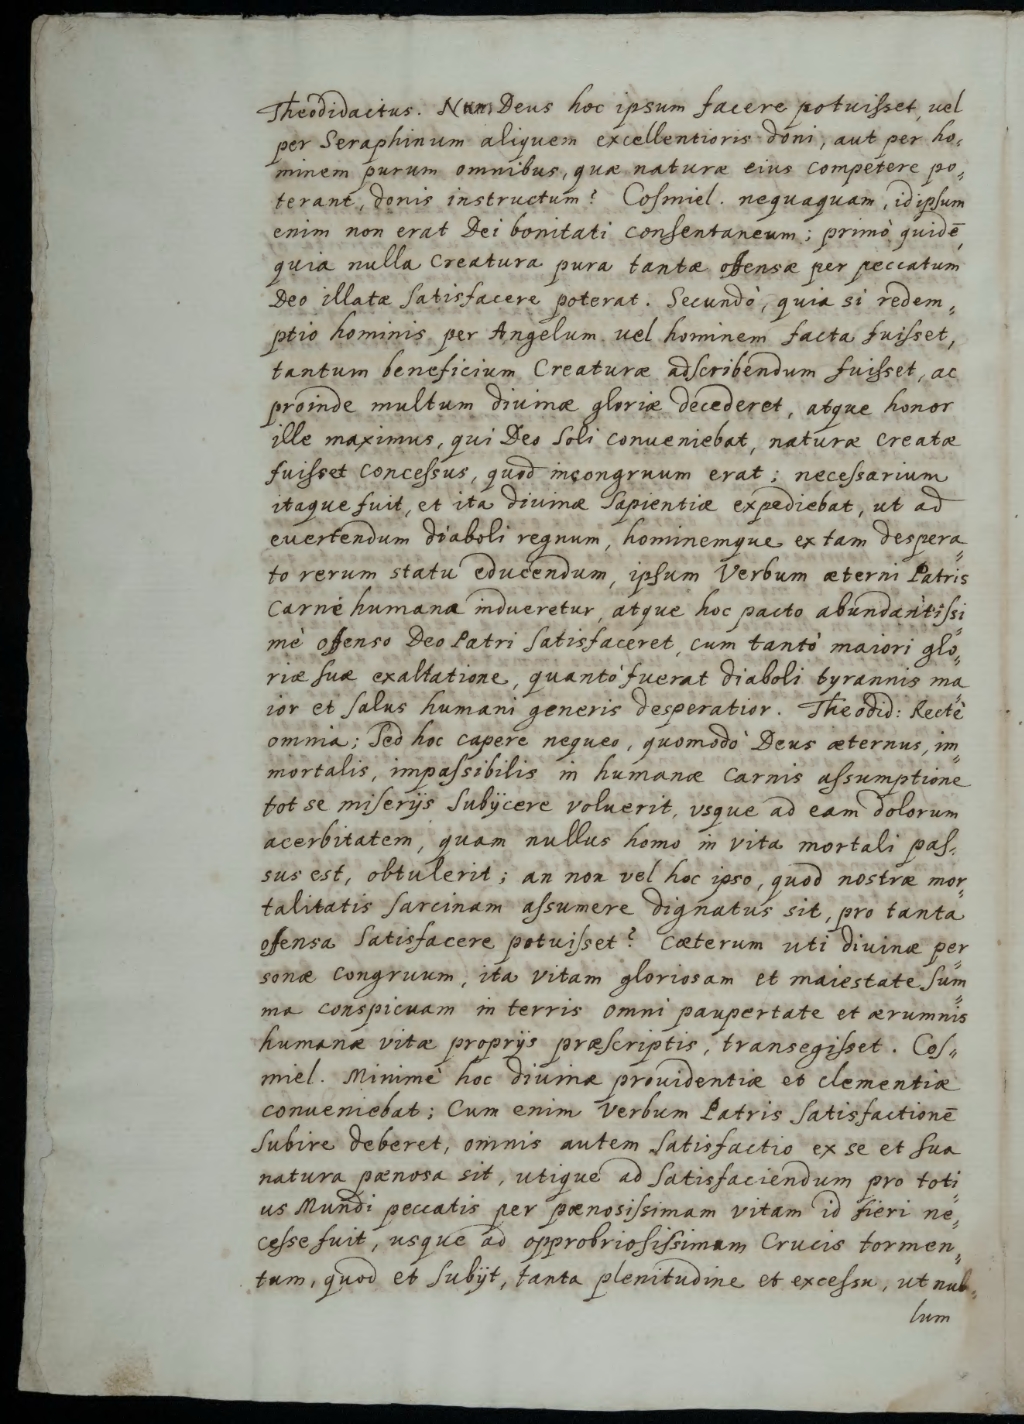 Theodidactus. Num Deus hoc ipsum facere potuiſset, uel
per Seraphinum aliquem excellentioris doni, aut per ho„
minem purum omnibus, quæ naturæ eius competere po„
terant, donis instructum? Coſmiel. nequaquam, idipſum
enim non erat Dei bonitati conſentaneum; primò quidē,
quia nulla Creatura pura tantæ offensæ per peccatum
Deo illatæ ſatisfacere poterat. Secundò, quia si redem„
ptio hominis per Angelum uel hominem facta fuiſset,
tantum beneficium Creaturæ adſcribendum fuiſset, ac
proinde multum diuinæ gloriæ decederet, atque honor
ille maximus, qui Deo ſoli conueniebat, naturæ creatæ
fuiſset conceſsus, quod incongruum erat; neceſsarium
itaque fuit, et ita diuinæ ſapientiæ expediebat, ut ad
euertendum diaboli regnum, hominemque ex tam despera„
to rerum statu educendum, ipſum Verbum æterni Patris
Carne humana indueretur, atque hoc pacto abundantiſsi„
mè offenso Deo Patri ſatisfaceret, cum tantò maiori glo„
riæ ſuæ exaltatione, quantò fuerat diaboli tyrannis ma„
ior et ſalus humani generis desperatior. Theodid: Rectè
omnia; ſed hoc capere nequeo, quomodò Deus æternus, im„
mortalis, impaſsibilis in humanæ Carnis aſsumptione
tot se miſerijs ſubijcere voluerit, vsque ad eam dolorum
acerbitatem, quam nullus homo in vita mortali paſ„
sus est, obtulerit; an non vel hoc ipso, quod nostræ mor„
talitatis ſarcinam aſsumere dignatus sit, pro tanta
offensa ſatisfacere potuiſset? Cæterum uti diuinæ per„
sonæ congruum, ita vitam gloriosam et maiestate ſum„
ma conspicuam in terris omni paupertate et ærumnis
humanæ vitæ proprijs præscriptis, transegiſset. Coſ„
miel. Minimè hoc diuinæ prouidentiæ et clementiæ
conueniebat; Cum enim Verbum Patris ſatisfactionē
ſubire deberet, omnis autem ſatisfactio ex se et ſua
natura pænosa sit, utique ad ſatisfaciendum pro toti„
us Mundi peccatis per pænosiſsimam vitam id fieri ne„
ceſse fuit, usque ad opprobrioſiſsimam Crucis tormen„
tum, quod et ſubijt, tanta plenitudine et exceſsu, ut nul„
lum